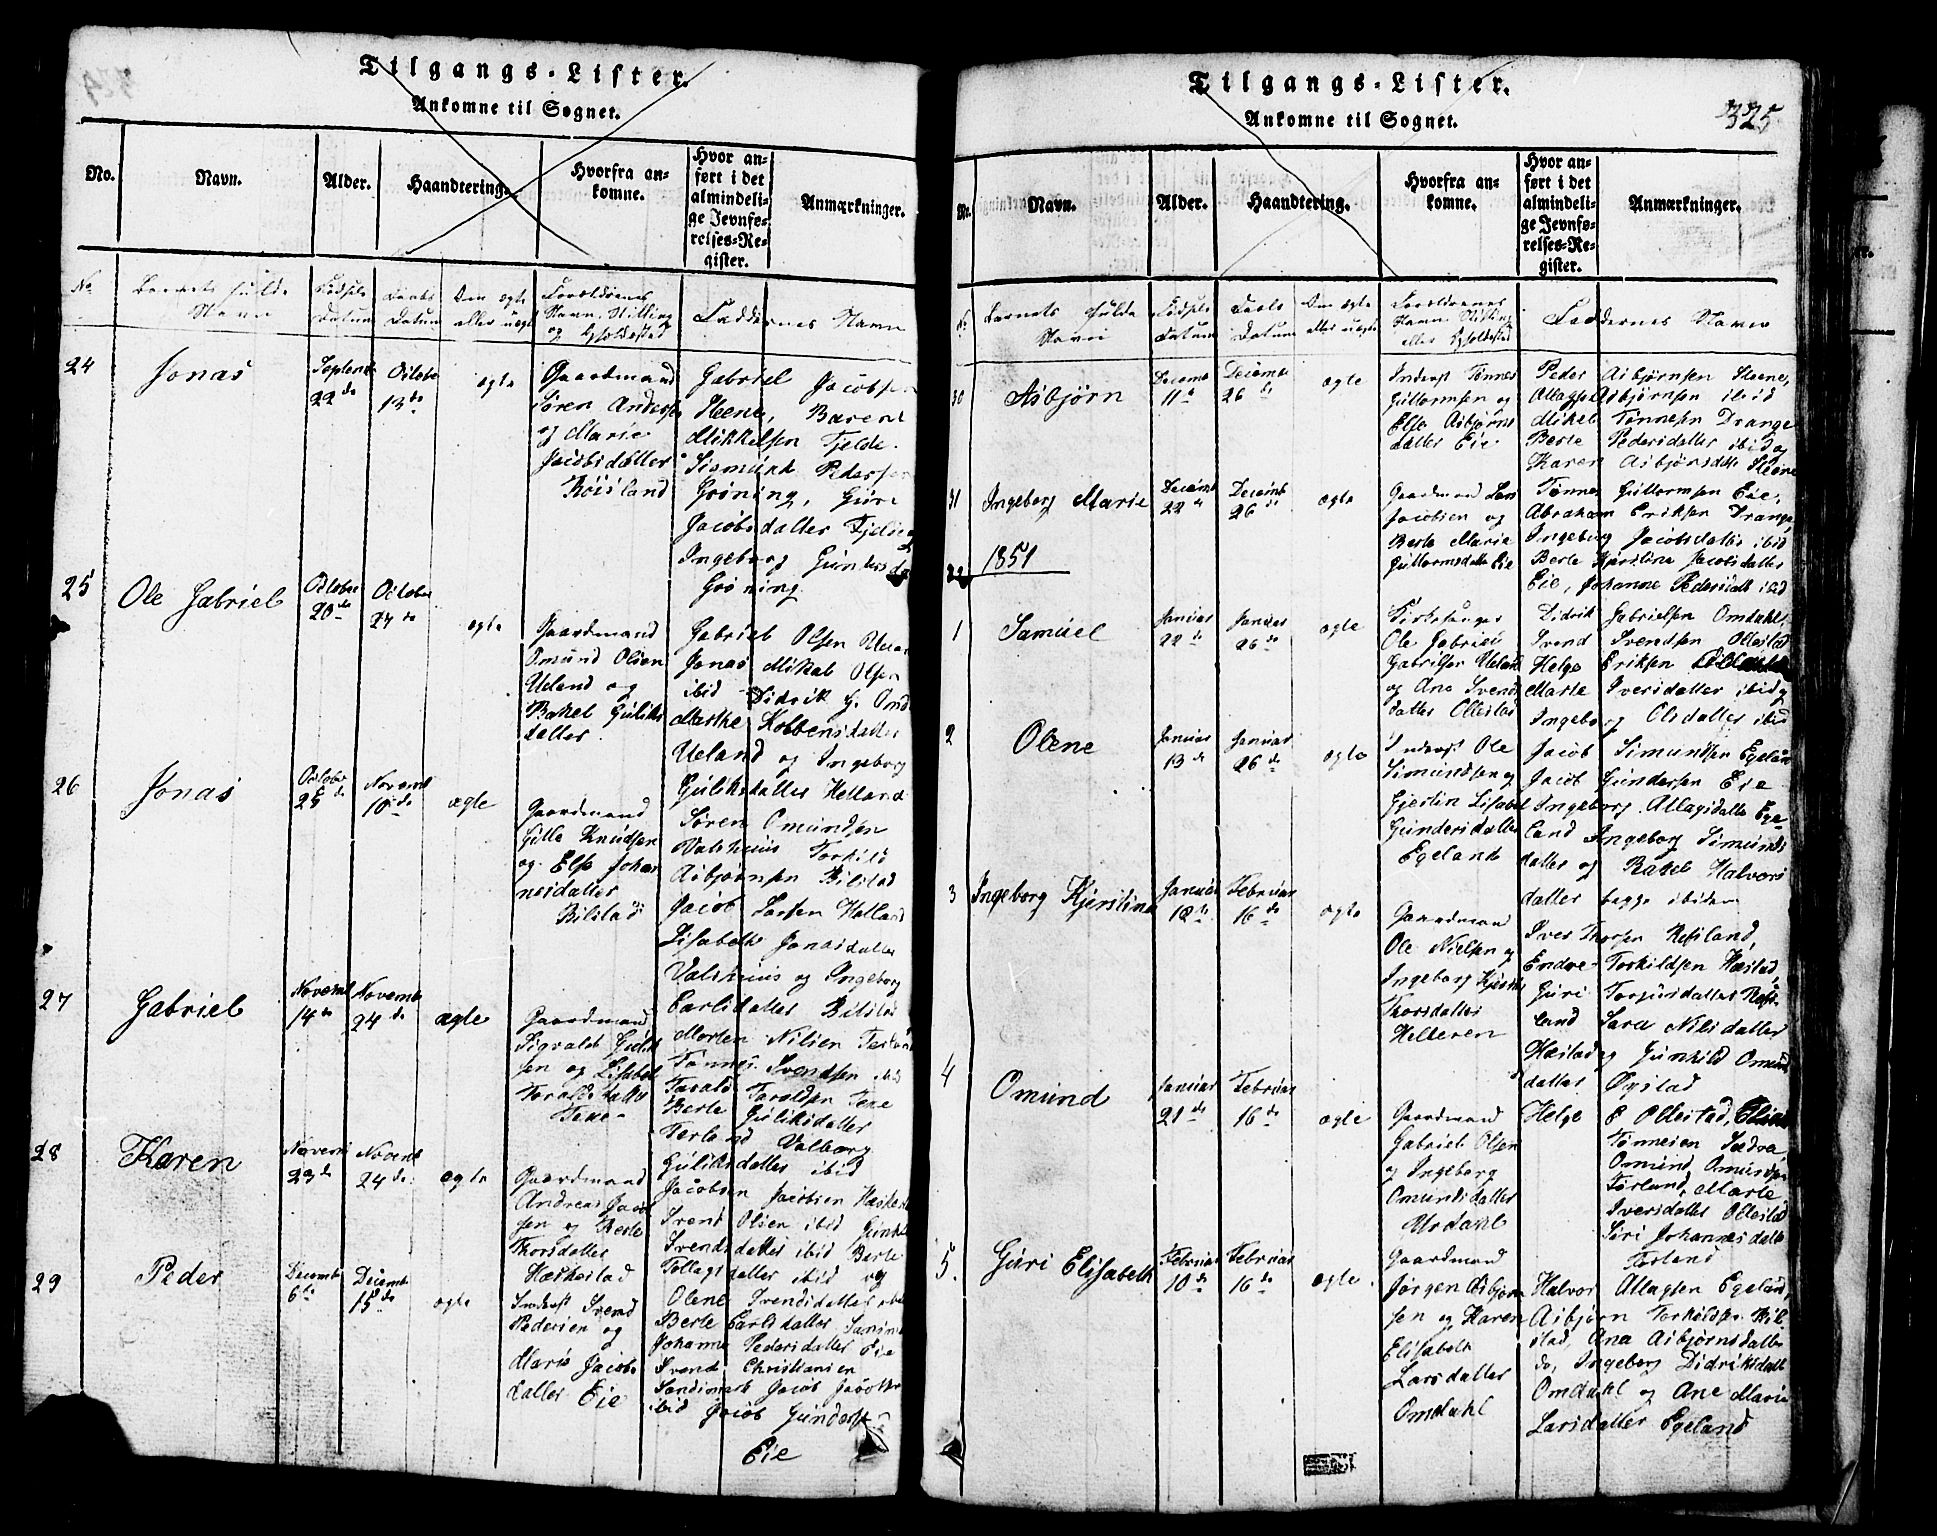 Tilgangs-Lister.
Ankomne til Sognet.
No.
Navn.
Alder.
Haandtering.
Hvorfra an-
komne.
Hvor an-
ført i det
almindeli-
ge Jevnfø-
relses-Re-
gister.
Anmærkninger.
No
Barnets fulde
Navn
Fødsels
Datum
Daabs
Datum
Om ægte
eller uægte
Forældrenes
Navn, Stilling
og Opholdssted
Faddernes Navn
24
Jonas
Septemb
22de
Octobe
13de
ægte
Gaardmand
Søren Anders
og Marie
Jacobsdatter
Röisland
Gabriel Jacobsen
Steene, Barent
Mikkelsen Fjelde
Sigmund Pedersen
Gröning, Guri
Jacobsdatter Fjelde
Ingeborg Gunders
Gröning
25
Ole Gabriel
Octobe
20de
Octobe
27de
ægte
Gaardmand
Omund Olsen
Ueland og
Rakel Guliks
datter
Gabriel Olsen Uelan
Jonas Mikal Olsen
ibid Didrik G. Omd
Marthe Kobbensdatter
Ueland og Ingeborg
Guliksdatter Helland
26
Jonas
Octobe
25de
Novemb
10de
ægte
Gaardmand
Gitle Knudsen
og Else Johan
nesdatter
Bilstad
Søren Omundsen
Valshuus Torkild
Asbjørnsen Bilstad
Jacob Larsen Helland
Lisabeth Jonasdatter
Valshuus og Ingeborg
Carlsdatter Bilstad
27
Gabriel
Novemb
14de
Novemb
24de
ægte
Gaardmand
Sigvald Gulik
sen og Lisabet
Toraldsdatter
Morten Nilsen
Tønnes Svendsen ibid
Tarald Taraldsen
Berte Guliksdatter
Terland Valborg
Guliksdatter ibid
28
Karen
Novem
23de
Novemb
24de
ægte
Gaardmand
Andreas Jacob
sen og Berte
Thorsdatter
Hæskestad
Jacobsen Jacobsen Hæskest
Svend Olsen ibid Gunhild
Svendsdatter ibid Berte
Tollagsdatter ibid og
Olene Svendsdatter
29
Peder
Decemb
6te
Decemb
15de
ægte
Inderst Svend
Pedersen og
Marie Jacobs
datter Eie
Berte Carlsdatter
Johanne Pedersdatter Eie
Svend Christiansen
Sandsmark Jacob
ibid Jacob Gunders
Eie
Tilgangs-Lister.
Ankomne til Sognet.
325
Nr.
Navn.
Alder.
Haandtering.
Hvorfra an-
komne.
Hvor an-
ført i det
almindeli-
ge Jevnfø-
relses-Re-
gister.
Anmærkninger.
No
Barnets fulde
Navn
Fødsels
Datum
Daabs
Datum
Om ægte
eller uægte
Forældrenes
Navn Stilling
eller Opholdssted
Faddernes Navn
30
Asbjørn
Decemb
11te
Decemb
26de
ægte
Inderst Tønnes
Guttormsen og
Else Asbjørns
datter Eie
Peder Asbjørnsen Steene,
Attagse Asbjørnsen ibid
Mikel Tønnesen Drange
Berte Pedersdatter ibid og
Karen Asbjørnsdatt Steene
31
Ingeborg Marie
Decemb
22de
Decemb
26de
ægte
Gaardmand Lars
Jacobsen og
Berte Marie
Guttormsdatter Eie
Tønnes Guttormsen Eie,
Abraham Eriksen Drange,
Ingeborg Jacobsdatter ibid
Berte Kjerstine Jacobsdatter
Eie, Johanne Pedersdatt ibid
1851
1
Samuel
Januar
22de
Januar
26de
ægte
Kirkesanger
Ole Gabriel
Gabrielsen Ueland
og Ane Svends
datter Ollestad
Didrik Gabrielsen Omdahl
Svend Svendsen Ollestad
Helge Eriksen
Marte Iversdatter ibid og
Ingeborg Olsdatter ibid
2
Olene
Januar
13de
Januar
26de
ægte
Inderst Ole
Simundsen og
Gjertin Lisabet
Gundersdatter
Egeland
Jacob Simundsen Egeland
Jacob Gundersen Eie
Ingeborg Attagsdatter Ege-
land Ingeborg Simunds
datter og Rakel Halvors
datter begge ibidem
3
Ingeborg Kjerstine
Januar
18de
Februar
16de
ægte
Gaardmand
Ole Nielsen og
Ingeborg Kjerst
Thorsdatter
Helleren
Iver Thorsen Refsland,
Endre Torkildsen Hæstad,
Guri Torjusdatter Refs-
land Sara Nilsdatter
Hæstad og Gunhild Omund
datter Øgstad
4
Omund
Januar
21de
Februar
16de
ægte
Gaardmand
Gabriel Olsen
og Ingeborg
Omundsdatter
Urdahl
Helge E Ollestad,
Tønnesen Sædra
Omund Omundsen
Førland, Marte
Iversdatter Ollestad
Siri Johannesdatt
Førland
5.
Guri Elisabeth
Februar
10de
Februar
16de
ægte
Gaardmand
Jørgen Asbjørn
sen og Karen
Elisabeth
Larsdatter
Omdahl
Halvor Attagsen Egeland,
Asbjørn Torkildsen Bil-
stad, Ana Asbjørnsdatter
do, Ingeborg Didriksdatt
Omdahl og Ane Marie
Larsdatter Egeland